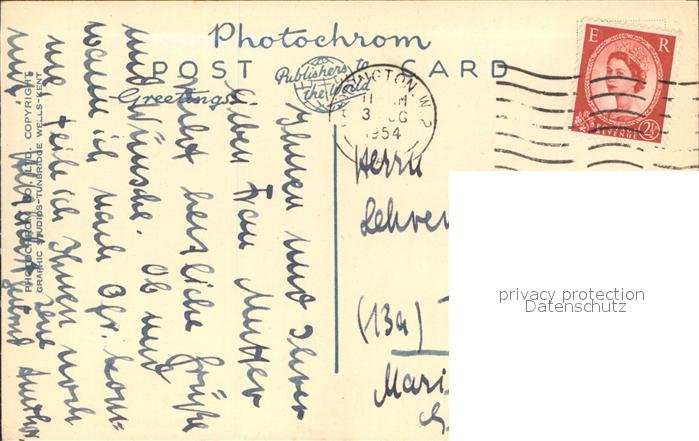 Photochrom
POST CARD
Publishers to
the World
Greetings
PHOTOCHROM CO., LTD. COPYRIGHT
GRAPHIC STUDIOS-TUNBRIDGE WELLS-KENT
Ihnen und Ihrer
lieben Frau Mutter
recht herzliche Grüße
und Wünsche. Ob und
wann ich nach Ofr. kom-
me teile ich Ihnen noch
mit.
PADDINGTON W.2
3 AUG
1954
E R
REVENUE
2½
Herrn
Lehrer
(13a)
Mari
privacy protection
Datenschutz